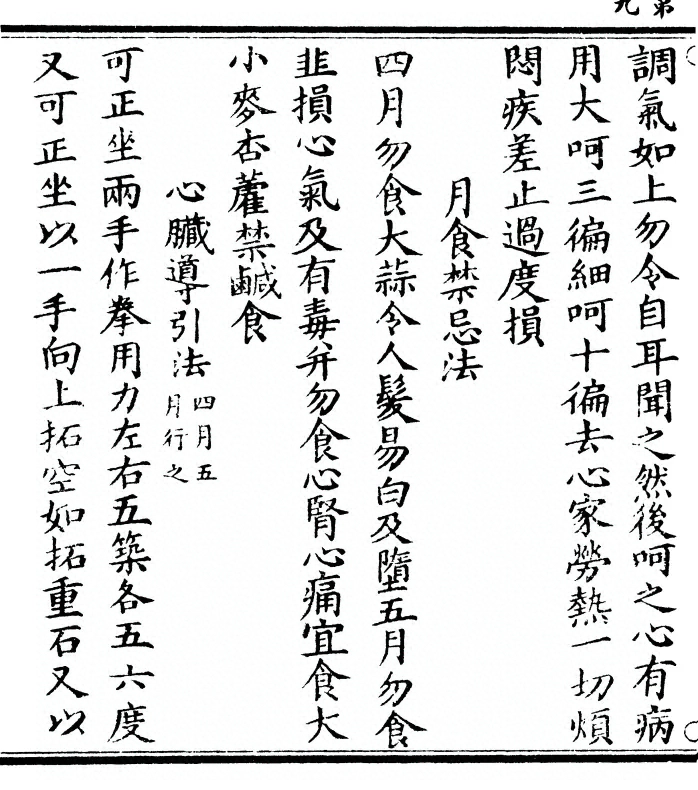 弟九
調氣如上勿令自耳聞之然後呵之心有病
用大呵三徧細呵十徧去心家勞熱一切煩
悶疾差止過度損
月食禁忌法
四月勿食大蒜令人髮易白及墮五月勿食
韭損心氣及有毒并勿食心腎心痛宜食大
小麥杏藿禁鹹食
心臟導引法四月五月行之
可正坐兩手作拳用力左右五築各五六度
又可正坐以一手向上拓空如拓重石又以